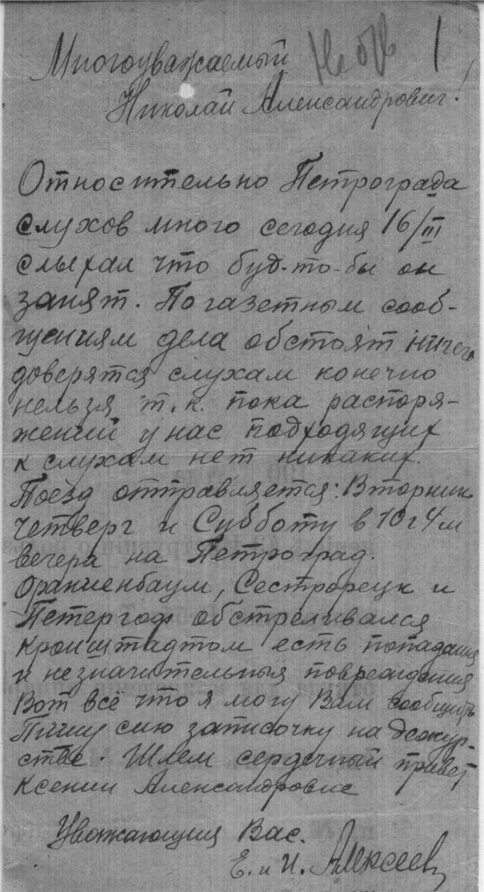 Многоуважаемый
Николай Александрович!
1
Относительно Петрограда
слухов много сегодня 16/III
слыхал что буд-то-бы он
занят. По газетным сооб-
щениям дела обстоят ничего
доверятся слухам конечно
нельзя т.к. пока распоря-
жений у нас подходящих
к слухам нет никаких.
Поезд отправляется: Вторник
Четверг и Субботу в 10 ч 4 м
вечера на Петроград.
Ораниенбаум, Сестрорецк и
Петергоф обстреливался
кронштадтом есть попадания
и незначительныя повреждения
Вот всё что я могу Вам сообщить
Пишу сию записочку на дежур-
стве. Шлем сердечный привет
Ксении Александровне
Уважающия Вас.
Е. и И. Алексеев